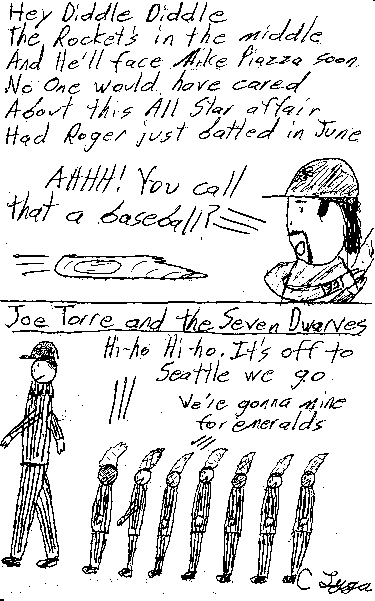 Hey Diddle Diddle
The Rocket's in the middle
And He'll face Mike Piazza soon.
No One would have cared
About this All Star affair
Had Roger just batted in June
AHHH! You call
that a baseball?
Joe Torre and the Seven Dwarves
Hi-ho Hi-ho. It's off to
Seattle we go
We're gonna mine
for emeralds
C Lyga